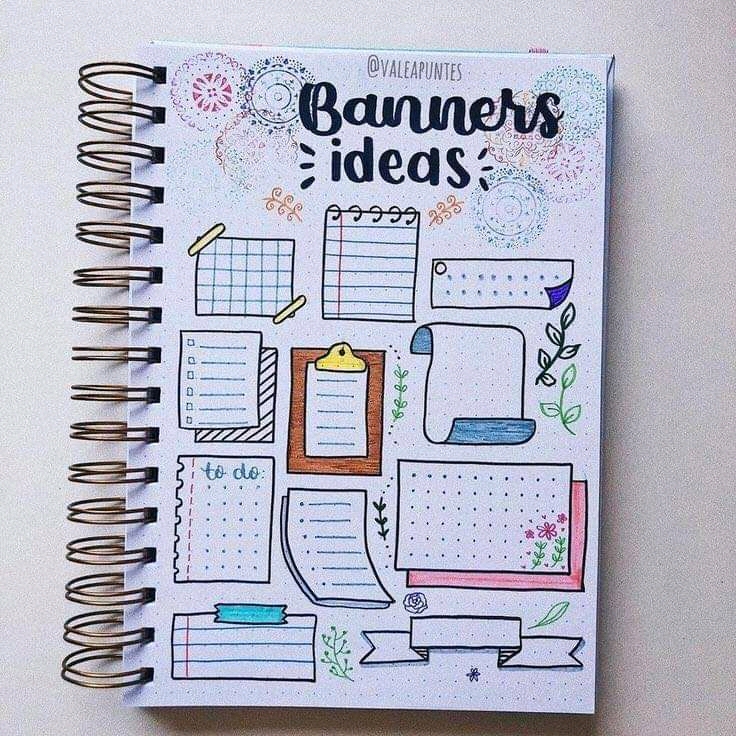 @VALEAPUNTES
Banners
ideas
to do: